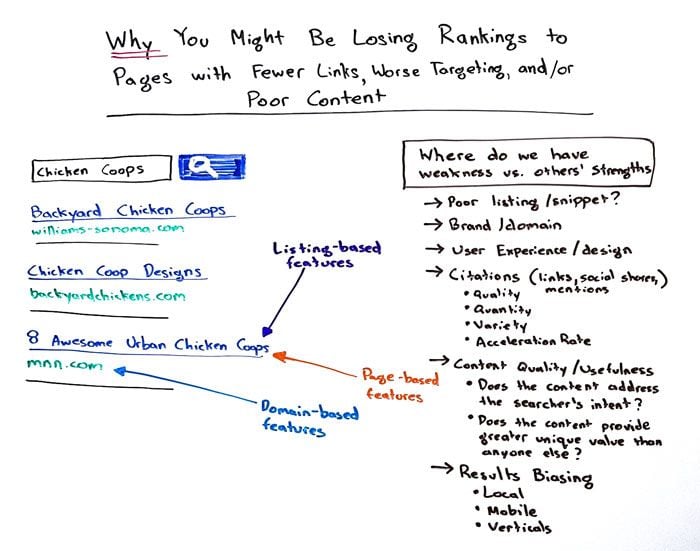 Why You Might Be Losing Rankings to
Pages with Fewer Links, Worse Targeting, and/or
Poor Content
Chicken Coops
Backyard Chicken Coops
williams-sonoma.com
Chicken Coop Designs
backyardchickens.com
8 Awesome Urban Chicken Coops
mnn.com
Listing-based
features
Page-based
features
Domain-based
features
Where do we have
weakness vs. others' strengths
→ Poor listing/snippet?
→ Brand/domain
→ User Experience/design
→ Citations (links, social shares,
mentions)
• Quality
• Quantity
• Variety
• Acceleration Rate
→ Content Quality/Usefulness
• Does the content address
the searcher's intent?
• Does the content provide
greater unique value than
anyone else?
→ Results Biasing
• Local
• Mobile
• Verticals